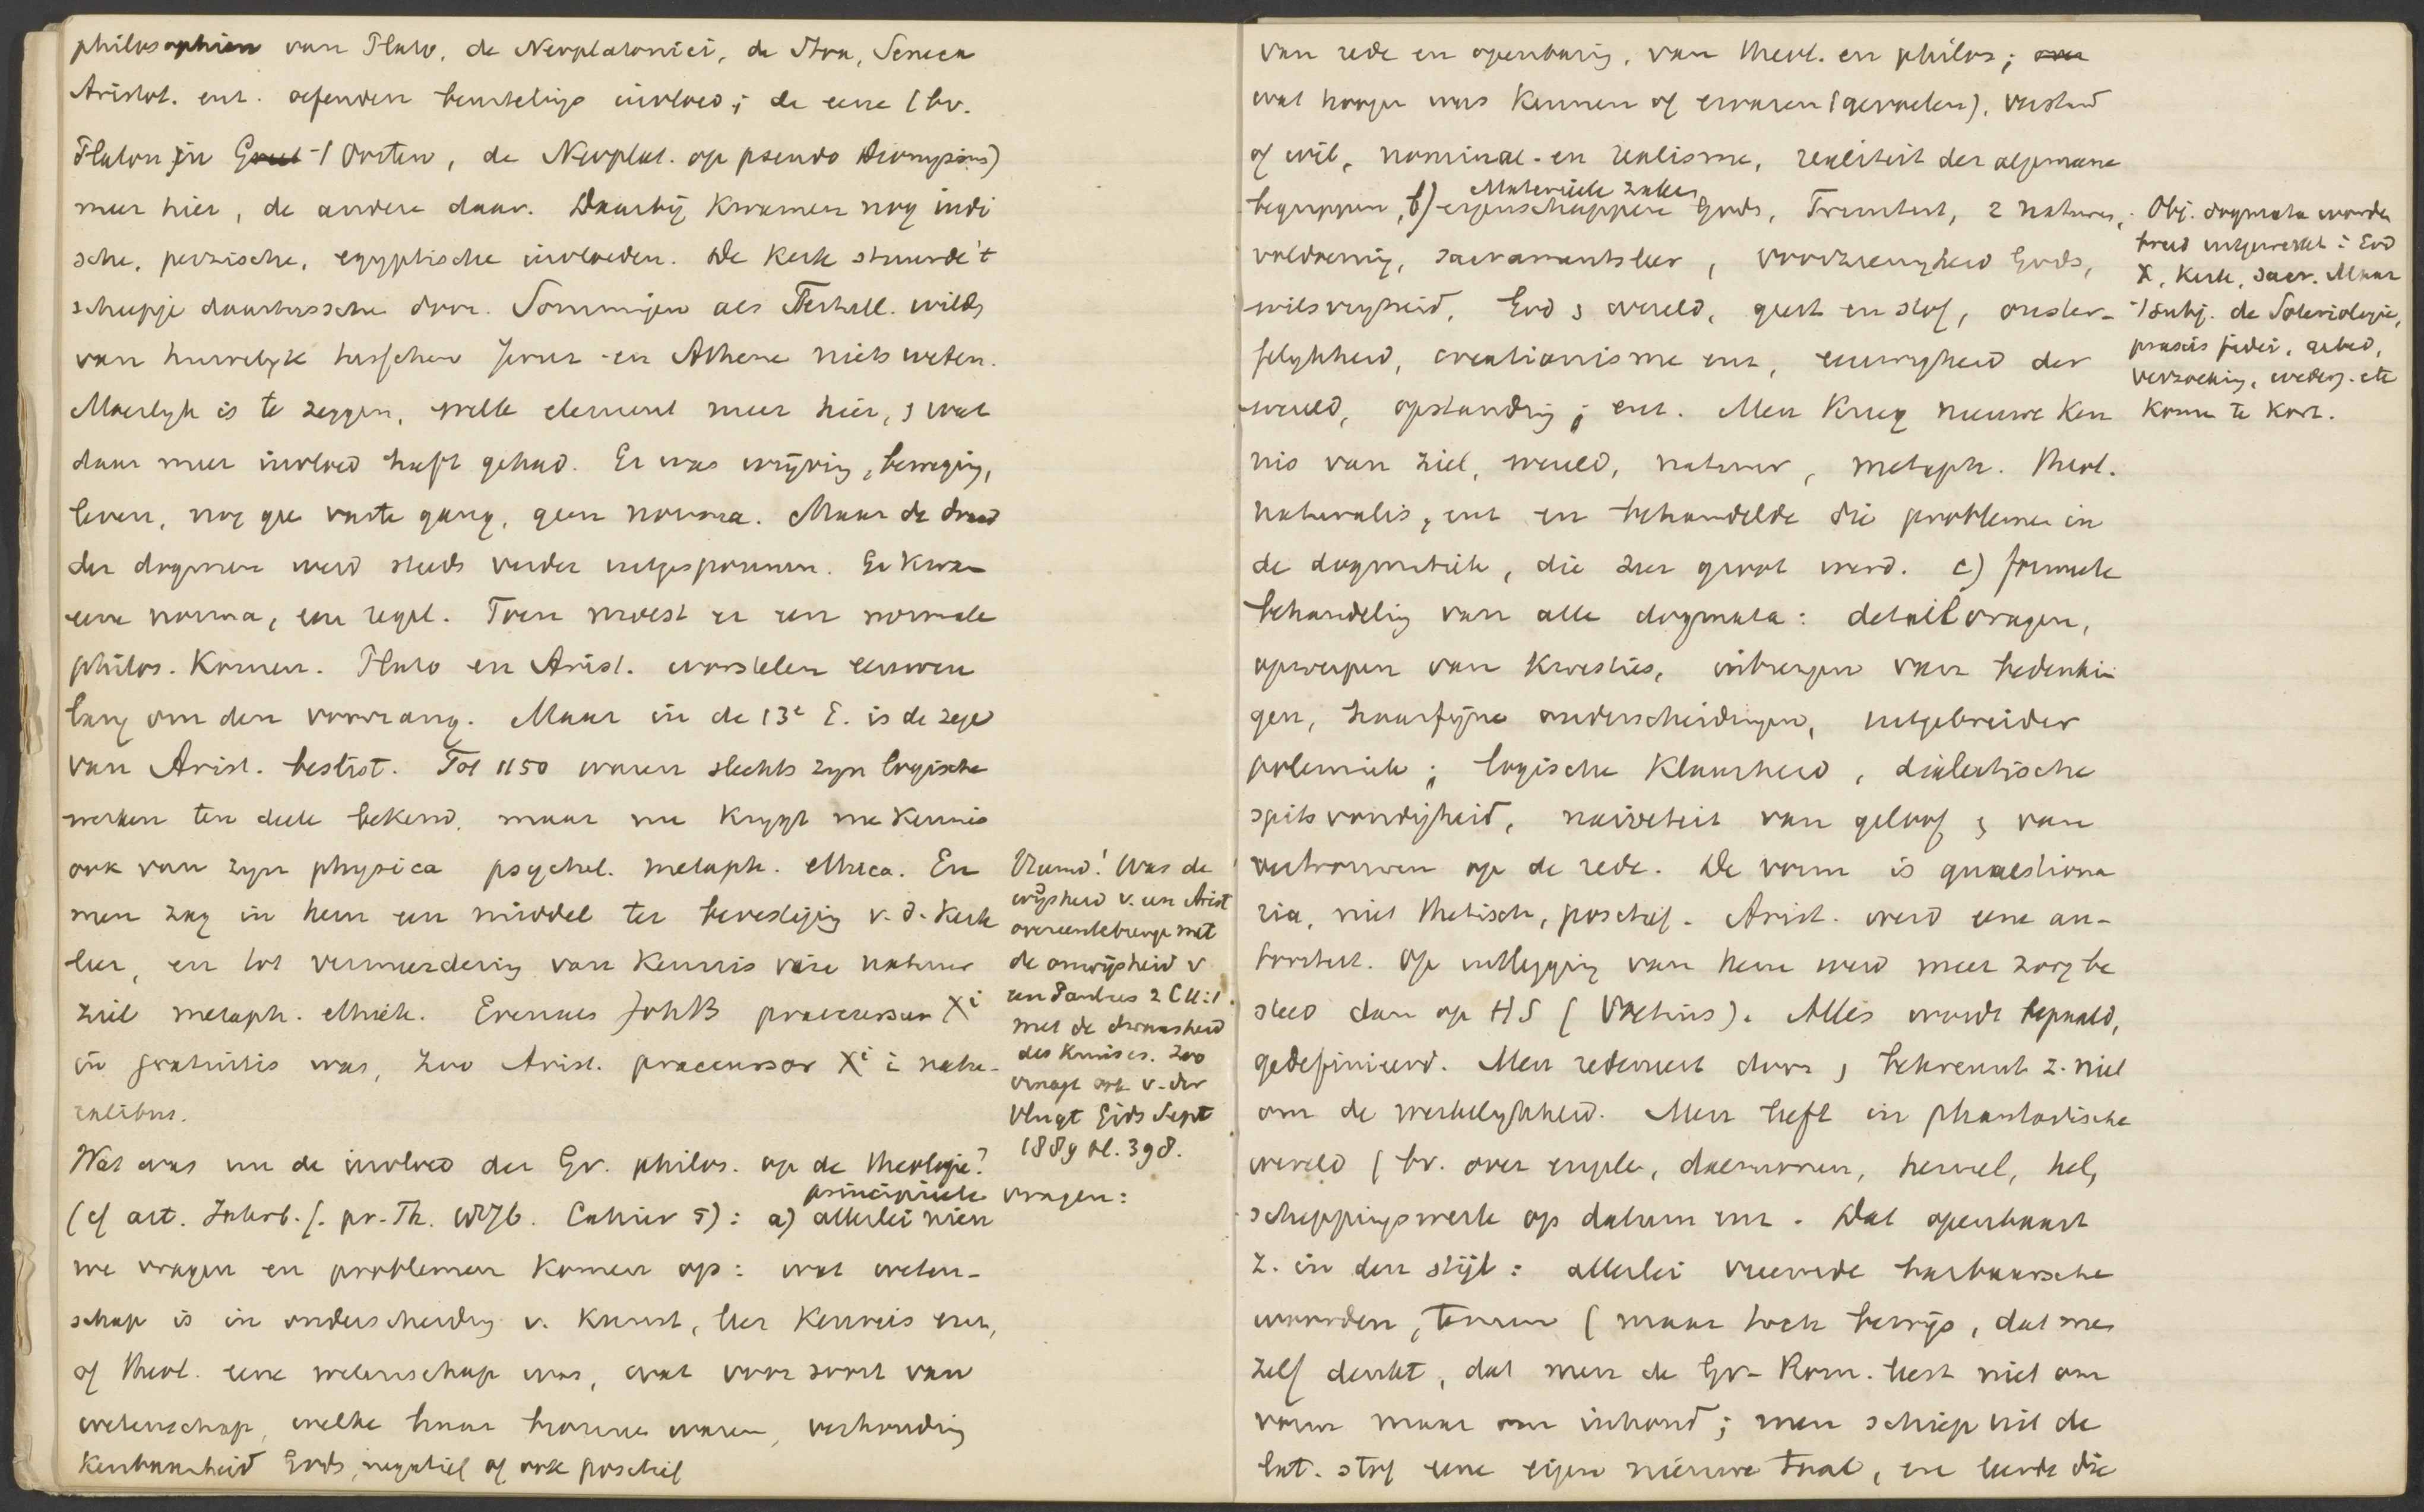 philosophien van Plato, de Neoplatonici, de Stoa, Seneca
Aristot. enz. oefenden beurtelings invloed; de eene (bv.
Platon in 't Oosten, de Neoplat. op pseudo Dionysius)
meer hier, de andere daar. Daarbij kwamen nog indi
sche, perzische, egyptische invloeden. De Kerk stuurde 't
scheepje daartusschen door. Sommigen als Tertull. wilde
van huwelyk tusschen Jeruz. en Athene niets weten.
Moeilyk is te zeggen, welk element meer hier, wat
daar meer invloed heeft gehad. Er was wrijving, beweging,
leven, nog gee vaste gang, geen norma. Maar de draad
der dogmen werd steeds verder uitgesponnen. Er kwam
eene norma, een regel. Toen moest er een normale
philos. komen. Plato en Arist. worstelen eeuwen
lang om den voorrang. Maar in de 13e E. is de zege
van Arist. beslist. Tot 1150 waren slechts zyn logische
werken ten deele bekend, maar nu krygt me kennis
ook van zyn physica psychol. metaph. ethica. En
men zag in hem een middel ter bevestiging v. d. Kerk
leer, en tot vermeerdering van kennis natuur
ziel metaph. ethiek. Evenals JohB praecursor Xi
in gratuitis was, zoo Arist. praecursor Xi i natu-
ralibus.
Vreemd! Was de
wijsheid v. een Arist
overeentebrenge met
de onwijsheid v
een Paulus 2 C 11:1
met de dwaasheid
des Kruises. Zoo
vraagt ook v. der
Vlugt Gids Sept
1889 bl. 398.
Wat was nu de invloed der Gr. philos. op de theologie?
principieele vragen:
(cf art. Jahrb. f. pr. Th. Cahier 5): a) allerlei nieu
we vragen en problemen komen op: wat weten-
schap is in onderscheiding v. Kunst, leer kennis enz,
of theol. eene wetenschap was, wat voor soort van
wetenschap, welke haar bronnen waren, verhouding
Kenbaarheid Gods, negatief of ook positief
van rede en openbaring, van theol. en philos;
wat hooger was kennen of ervaren (gevoelen), verstand
of wil, nominal- en realisme, realiteit der algemeene
Materieele zaken
begrippen, b) eigenschappen Gods, Triniteit, 2 naturen,
voldoening, sacramentsleer, voorzienigheid Gods,
wilsvrijheid, God wereld, geest en stof, onster-
felykheid, creatianisme enz, eeuwigheid der
wereld, opstanding; enz. Men kreeg nieuwe ken
nis van ziel, wereld, natuur, metaph. theol.
naturalis, enz en behandelde die problemen in
de dogmatiek, die zeer groot werd. c) formeele
behandeling van alle dogmata: detailvragen,
opwerpen van kwesties, inbrengen van bedenkin
gen, haarfijne onderscheidingen, uitgebreider
polemiek; logische klaarheid, dialectische
spitsvondigheid, naiveteit van geloof van
vertrouwen op de rede. De vorm is quaestiona
ria, niet thetisch, positief. Arist. werd eene au-
toriteit. Op uitlegging van hem werd meer zorg be
steed dan op HS (Voetius). Alles wordt bepaald,
gedefinieerd. Men redeneert door, bekreunt z. niet
om de werkelykheid. Men leeft in phantastische
wereld (bv. over engele, daemonen, hemel, hel,
scheppingswerk op datum enz. Dat openbaart
z. in den stijl: allerlei vreemde barbaarsche
woorden, termen (maar toch bewijs, dat me
zelf denkt, dat men de Gr-Rom. leest niet om
vorm maar om inhoud; men schiep uit de
lat. stof eene eigen nieuwe taal, en leerde die
Obj. dogmata worden
breed uitgewerkt: God
X, Kerk, sacr. Maar
't subj. de Soteriologie,
praxis fidei, gebed,
verzoeking, wederg. etc
kome te kort.